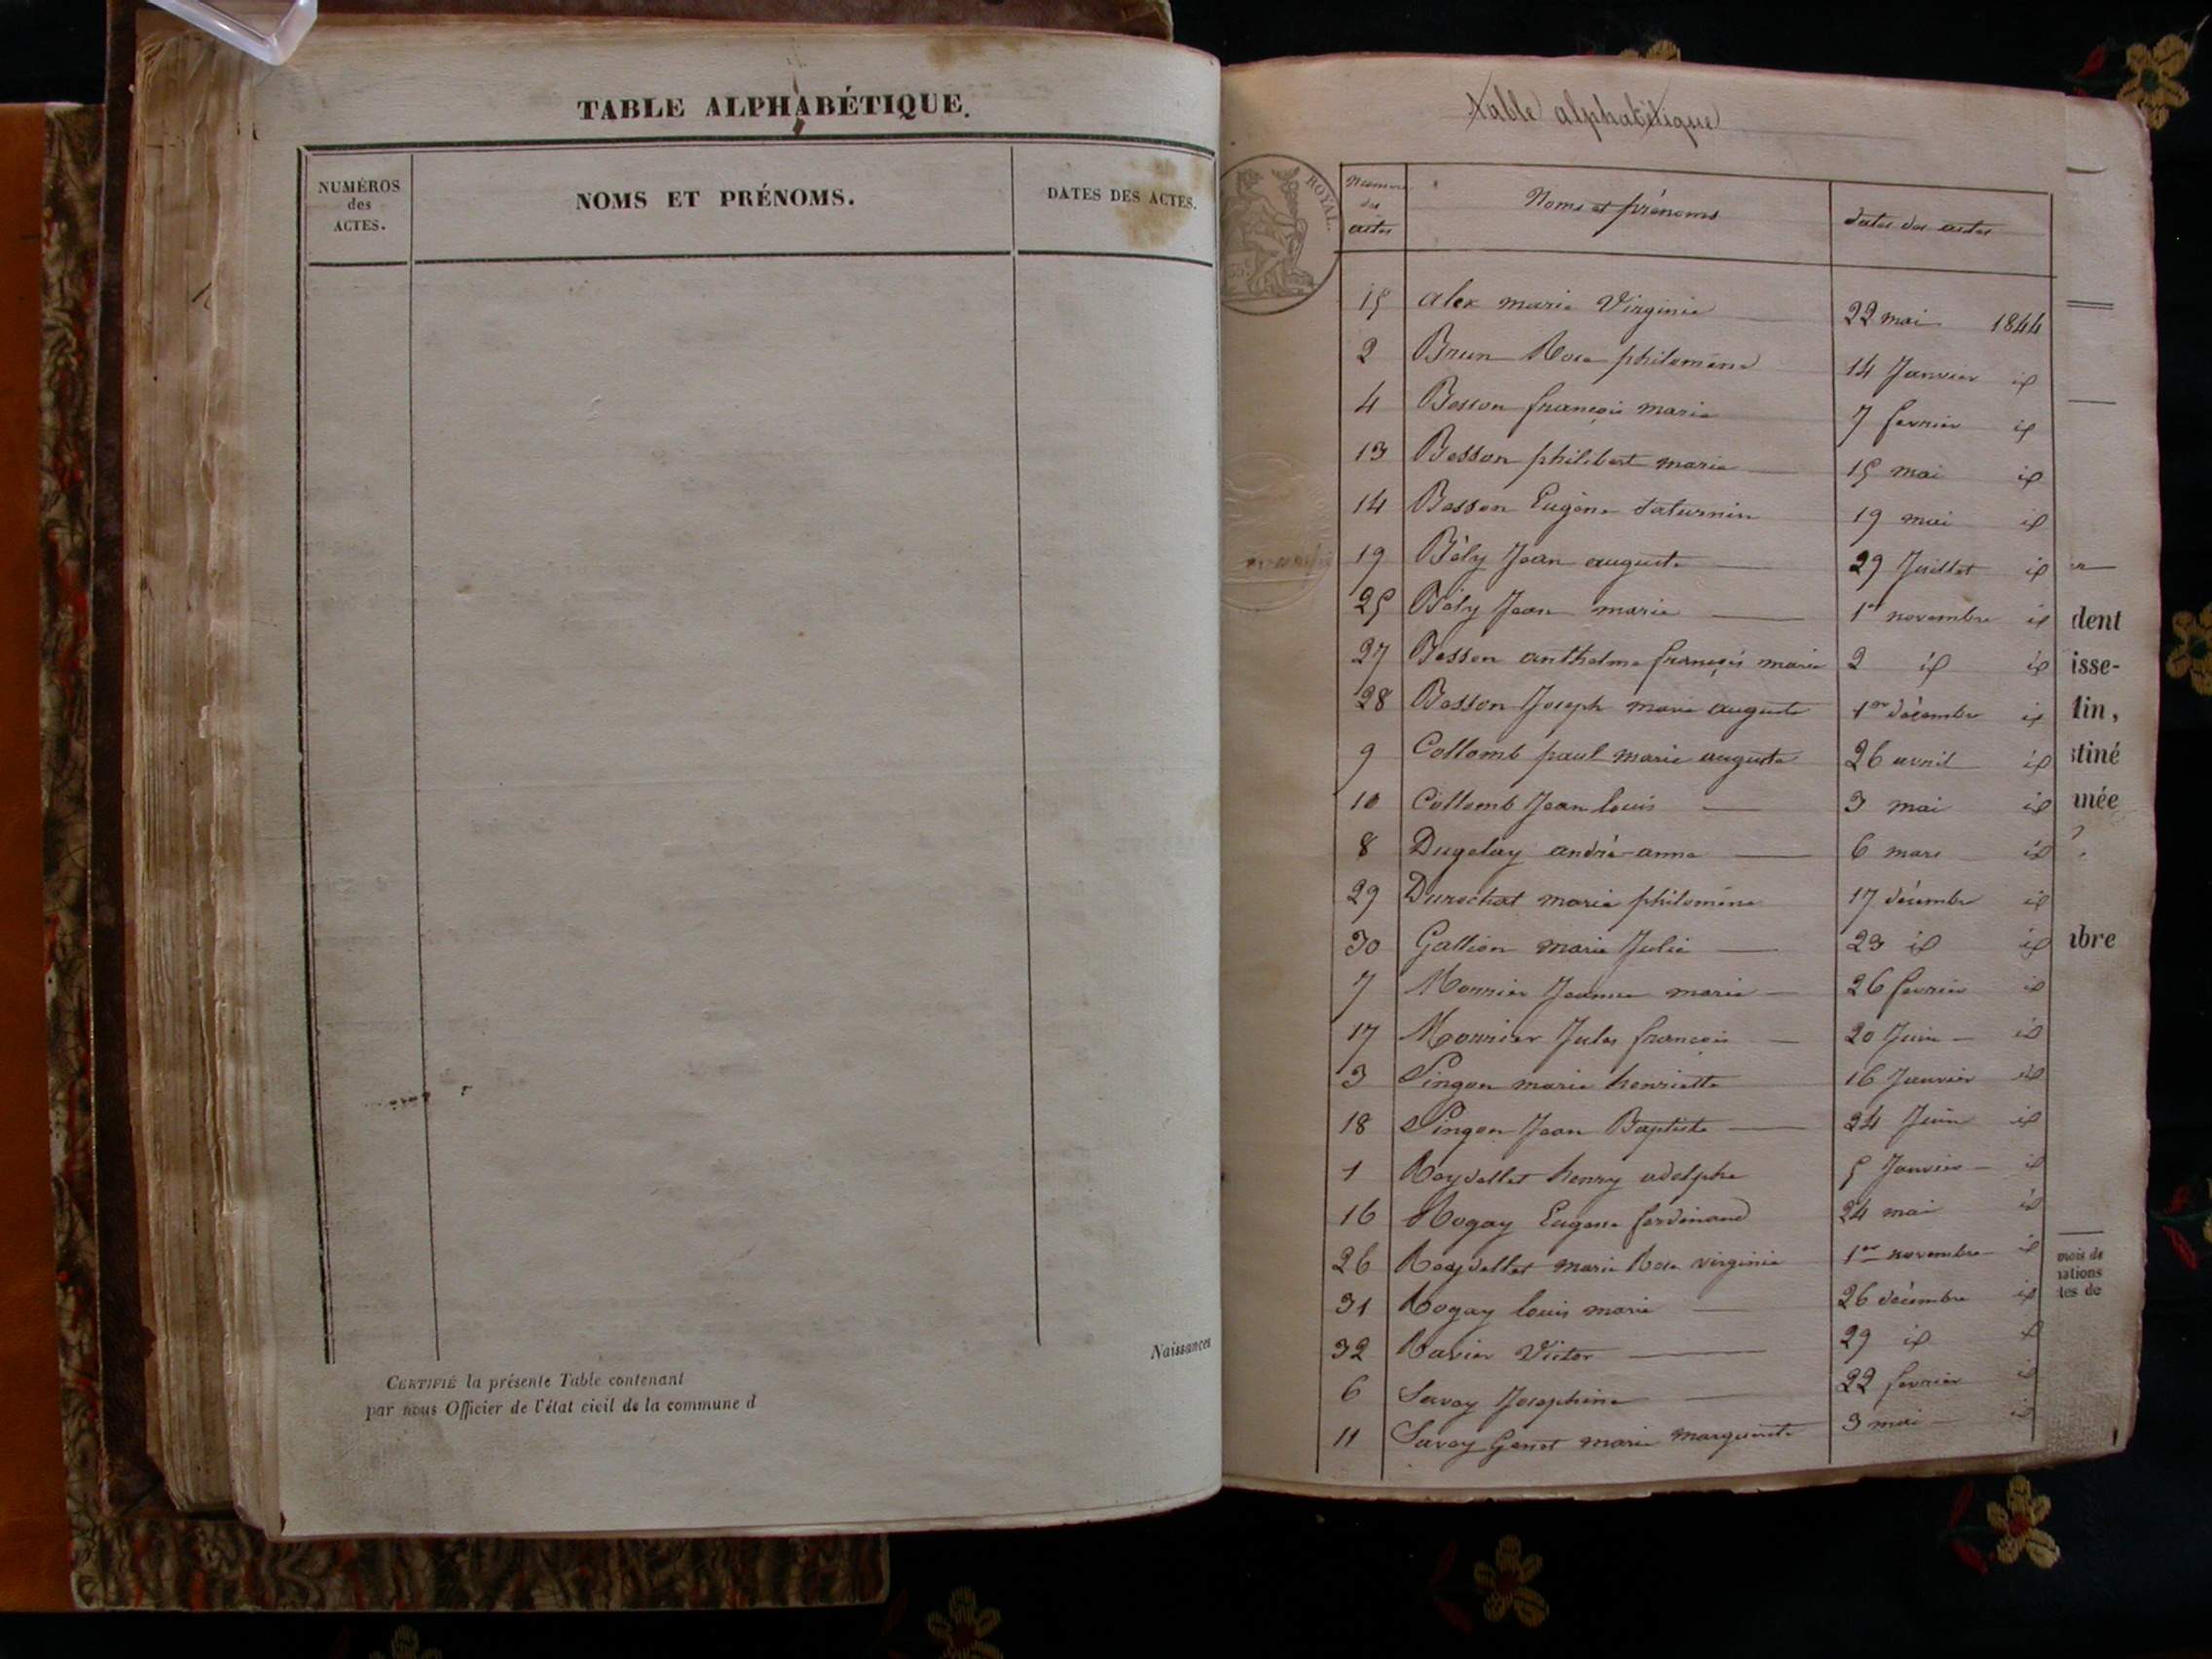 TABLE ALPHABÉTIQUE.
NUMÉROS
des
ACTES.
NOMS ET PRÉNOMS.
DATES DES ACTES.
Naissances
CERTIFIÉ la présente Table contenant
par nous Officier de l'état civil de la commune d
table alphabétique
ROYAL.
des
actes
Noms et prénoms
dates des actes
15 alex marie Virginie 22 mai 1844
2 Brun Rose philomène 14 Janvier id
4 Besson françois marie 7 fevrier id
13 Besson philibert marie 15 mai id
14 Besson Eugène Saturnin 19 mai id
19 Bély Jean auguste 29 Juillet id
25 Bély Jean marie 1er novembre id
27 Besson anthelme françois marie 2 id id
28 Besson Joseph marie auguste 1er décembre id
9 Collomb paul marie auguste 26 avril id
10 Collomb Jean louis 3 mai id
8 Dugelay andré-anne 6 mars id
29 Durochat marie philomène 17 décembre id
30 Gallion marie Julie 23 id id
7 Monnier Jeanne marie 26 fevrier id
17 Monnier Jules françois 20 Juin id
3 Pingon marie henriette 16 Janvier id
18 Pingon Jean Baptiste 24 Juin id
1 Reydellet henry adolphe 5 Janvier id
16 Rogay Eugene ferdinand 24 mai id
26 Reydellet marie Rose virginie 1er novembre id
31 Rogay louis marie 26 décembre id
32 Ravier Victor 29 id id
6 Savoy Josephine 22 fevrier id
11 Savoy Genot marie marguerite 3 mai id
dent
isse-
lin,
stiné
mée
bre
mois de
nations
tes de